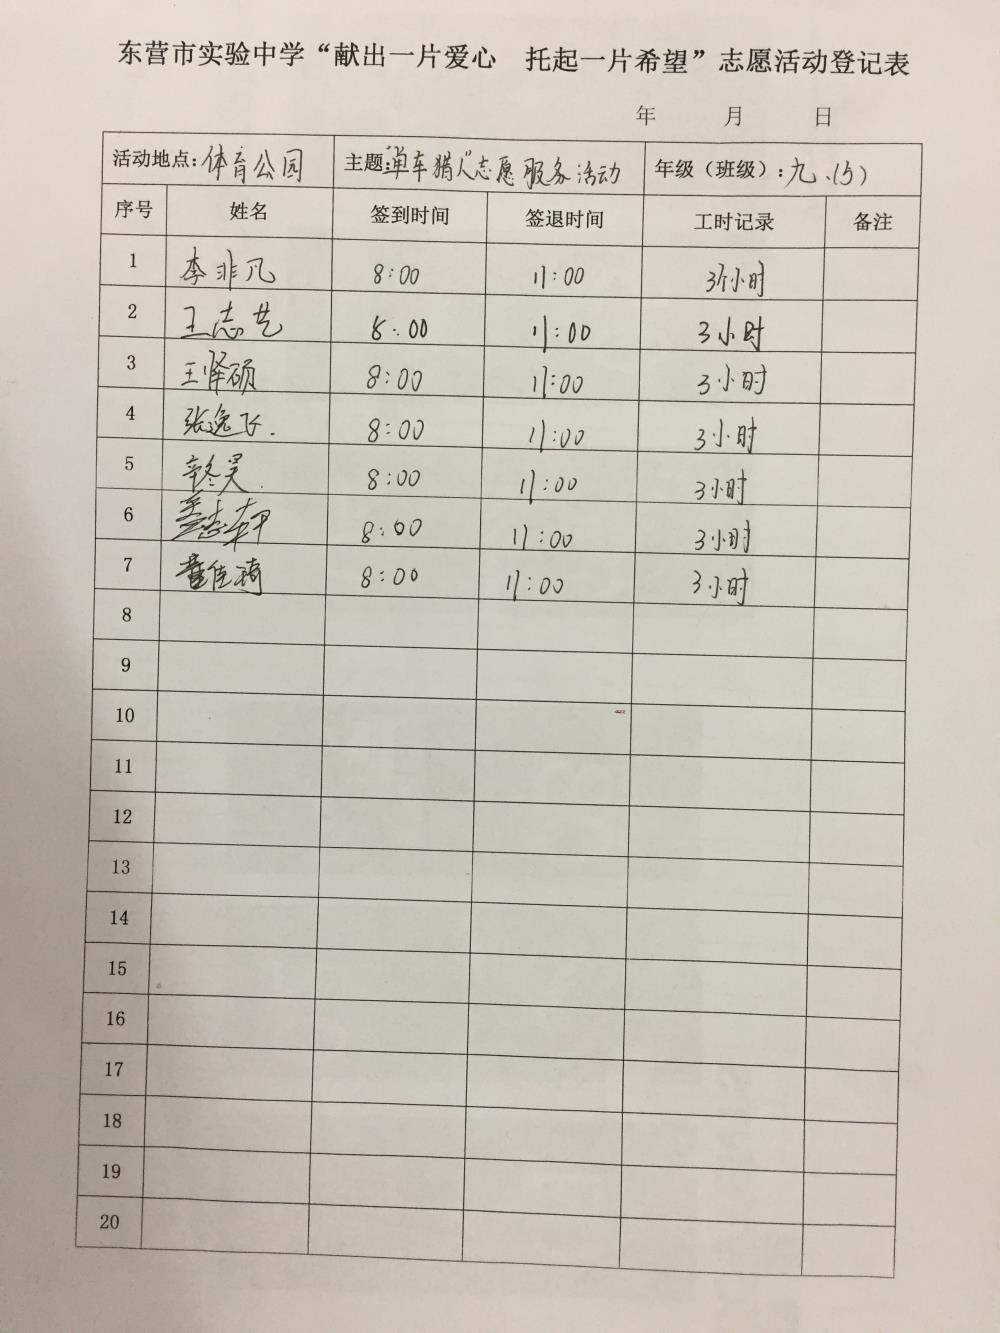 东营市实验中学“献出一片爱心 托起一片希望”志愿活动登记表
年 月 日
活动地点:体育公园 主题:“单车猎人”志愿服务活动 年级(班级):九.(15)
序号 姓名 签到时间 签退时间 工时记录 备注
1 李非凡 8:00 11:00 3个小时
2 王志艺 8:00 11:00 3小时
3 王怿硕 8:00 11:00 3小时
4 张逸飞. 8:00 11:00 3小时
5 8:00 11:00 3小时
6 8:00 11:00 3小时
7 董佳琦 8:00 11:00 3小时
8
9
10
11
12
13
14
15
16
17
18
19
20